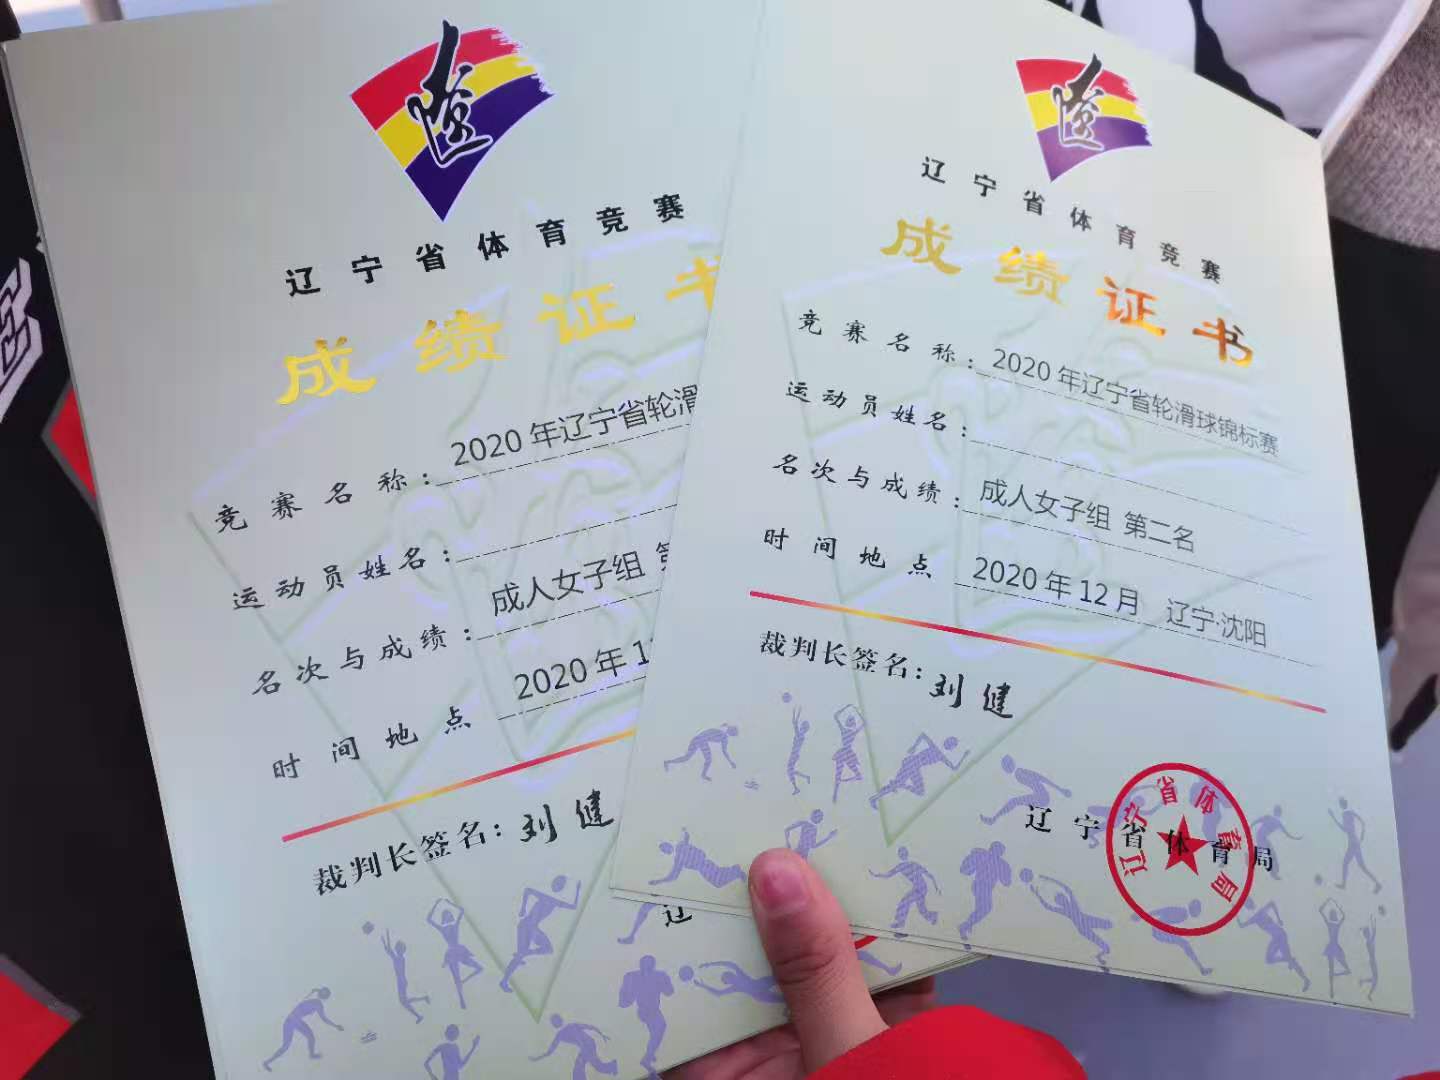 辽
辽宁省体育竞赛
成绩证书
竞赛名称：2020 年辽宁省轮滑
运动员姓名：
名次与成绩：成人女子组
时间地点 2020 年 1
裁判长签名：刘健
辽
辽
辽宁省体育竞赛
成绩证书
竞赛名称：2020 年辽宁省轮滑球锦标赛
运动员姓名：
名次与成绩：成人女子组 第二名
时间地点 2020 年 12 月 辽宁·沈阳
裁判长签名：刘健
辽宁省体育局
辽宁省体育局